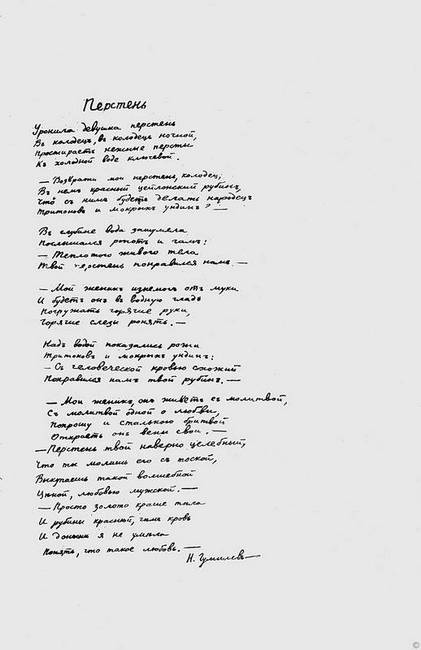 Перстень
Уронила девушка перстень
Въ колодецъ, въ колодецъ ночной,
Простираетъ нежные персты
Къ холодной воде ключевой.
— Возврати мой перстень, колодец,
Въ немъ красный цейлонский рубинъ,
Что съ нимъ будетъ делать народецъ
Тритоновъ и мокрыхъ ундинъ? —
Въ глубине вода зашумела
Послышался ропотъ и гамъ:
— Теплотою живого тела
Твой перстень понравился намъ. —
— Мой женихъ изнемогъ отъ муки
И будетъ онъ въ водную гладь
Погружать горячие руки,
Горячие слезы ронять. —
Надъ водой показались рожи
Тритоновъ и мокрыхъ ундинъ:
— Съ человеческой кровью схожий
Понравился намъ твой рубинъ. —
— Мой женихъ, онъ живетъ съ молитвой,
Съ молитвой одной о любви,
Попрошу и стальною бритвой
Откроетъ онъ вены свои. —
— Перстень твой наверно целебный,
Что ты молишь его съ тоской,
Выкупаешь такой волшебной
Ценой, любовью мужской. —
— Просто золото краше тела
И рубины красней, чемъ кровь
И доныне я не умела
Понять, что такое любовь. —
Н. Гумилевъ
©